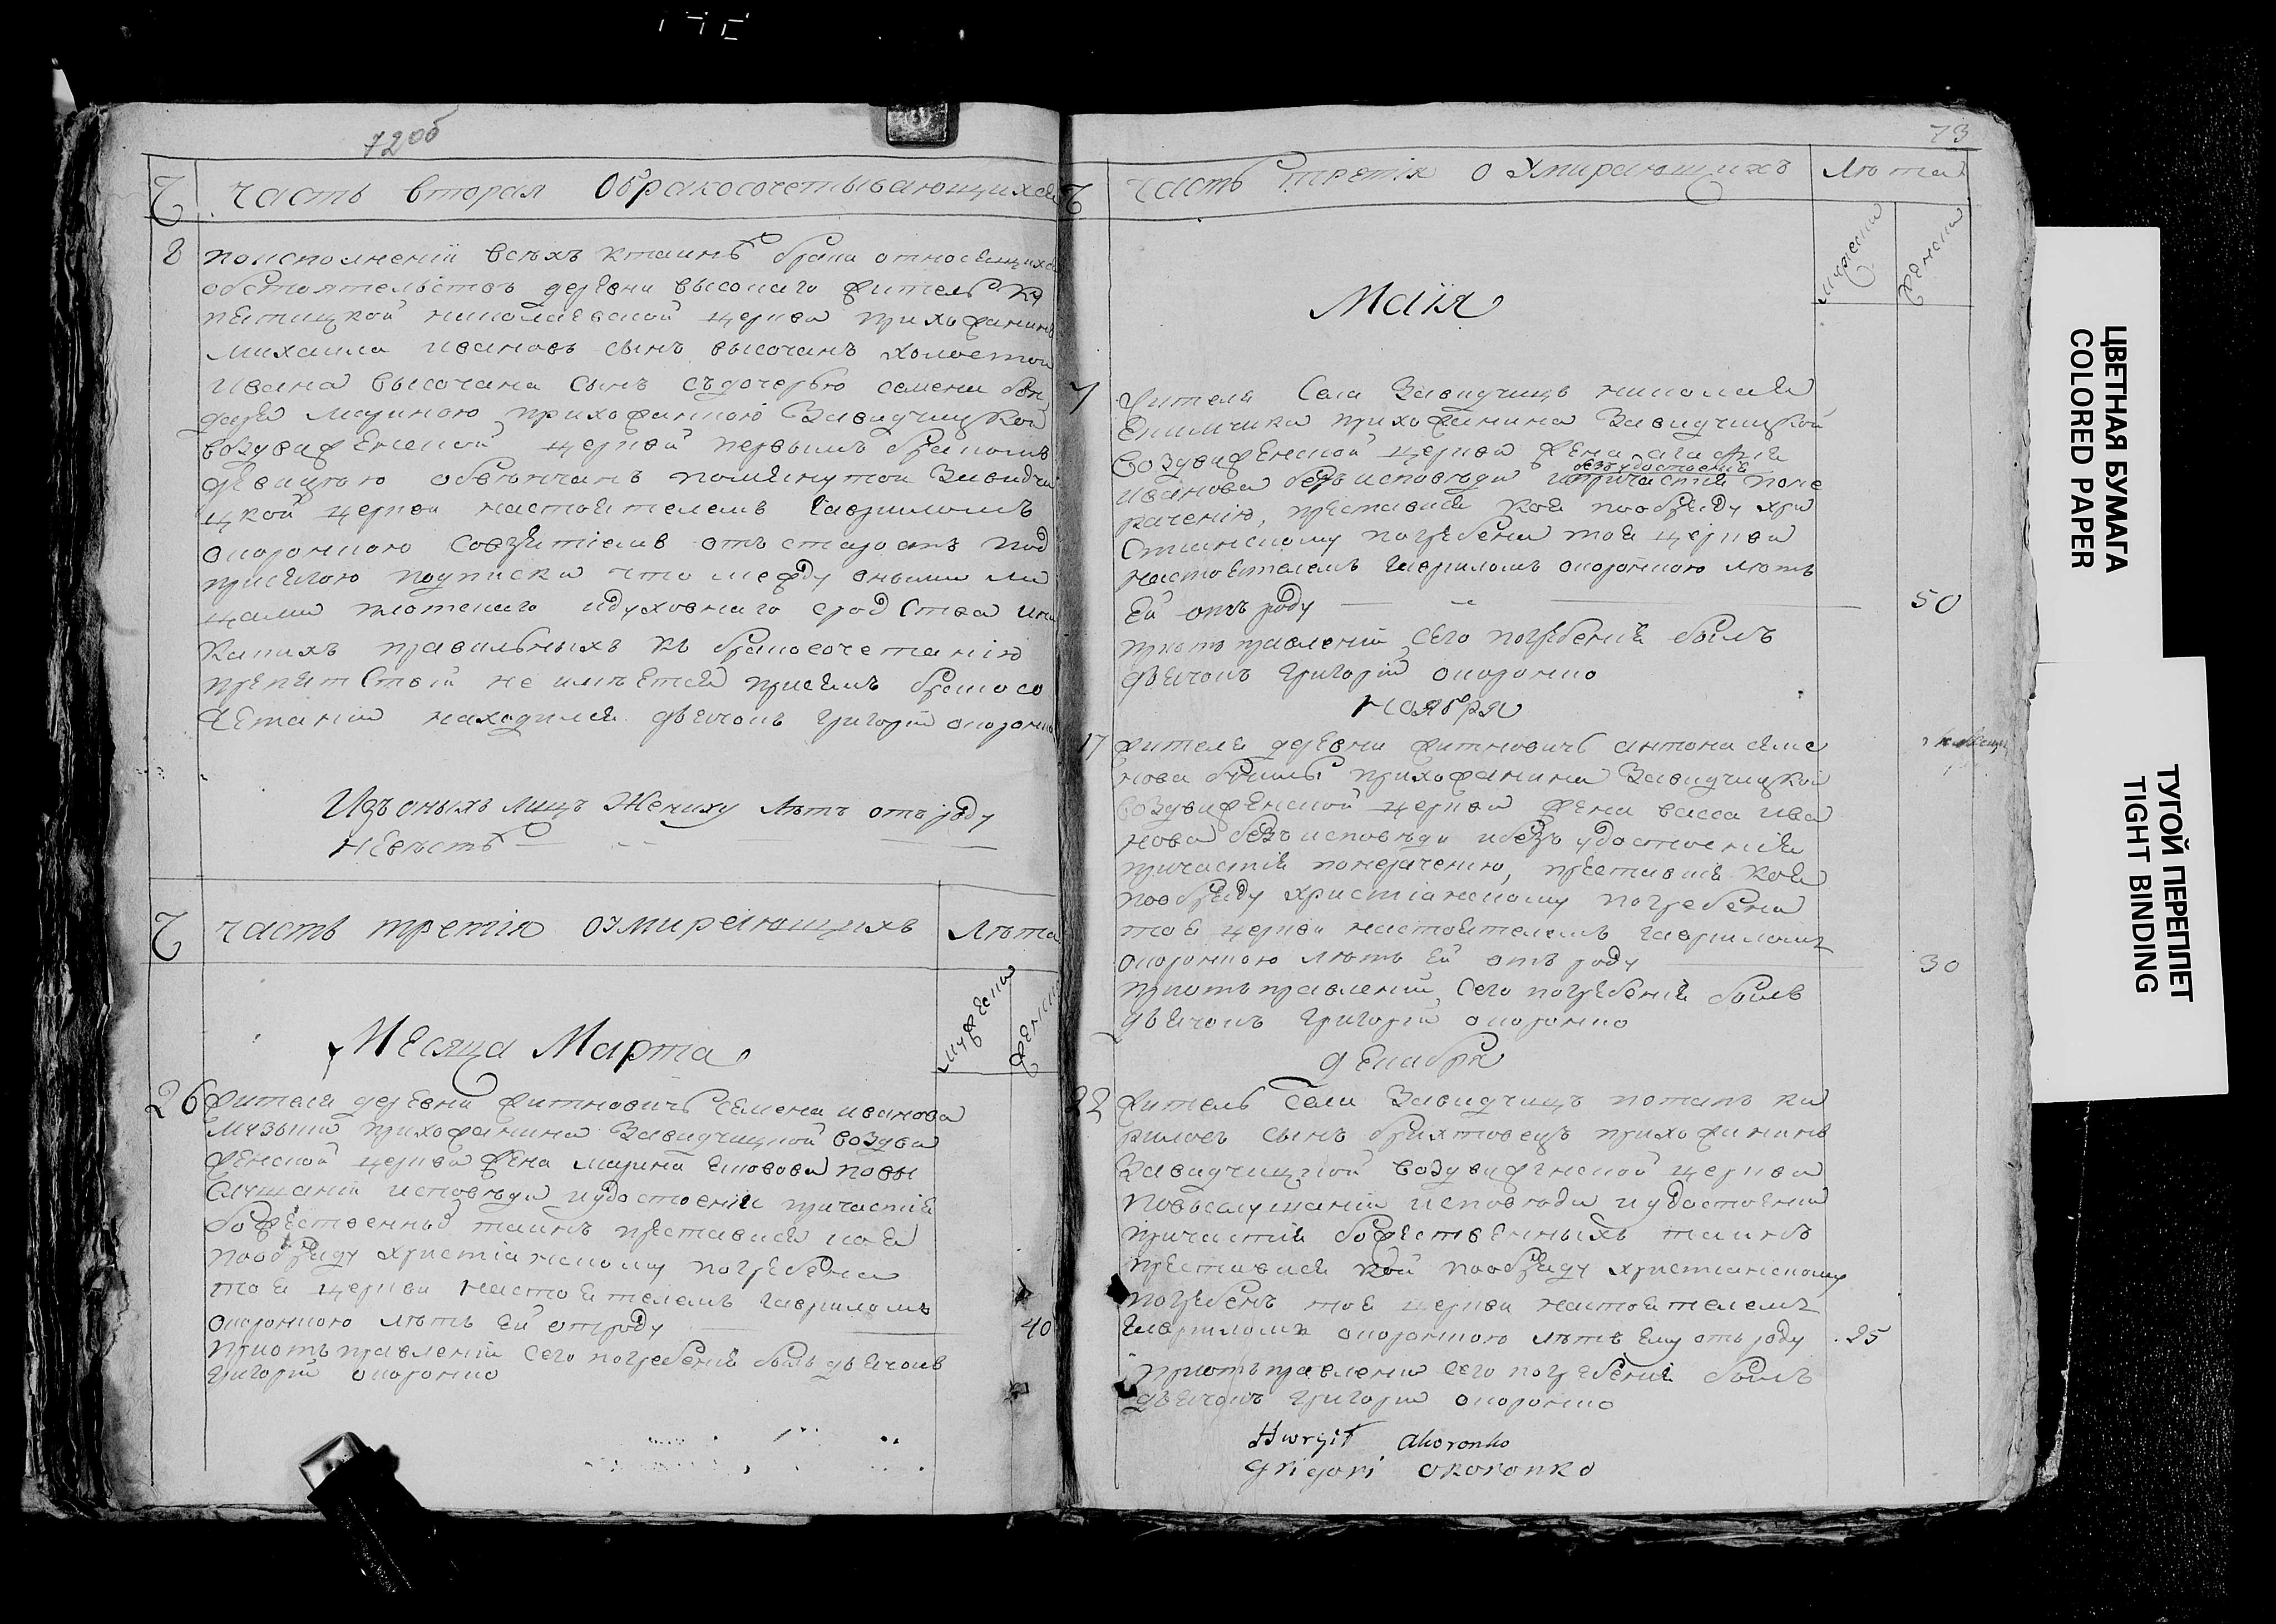 72об
Ч часть вторая Обракосочетывающихся
8 поисполненіи всѣхъ ктаинѣ брака относящихся
обстоятельствъ деревни высокаго житель
николаевской церкви прихожанинъ
михаила ивановъ сынъ высочанъ холостой
ивана высочана сынъ съдочерью семена
мариною прихожанкою Завидчицкой
воздвиженской церкви первымъ бракомъ
девицею обвѣнчанъ помянутой Завидчи
цкой церкви настоятелемъ гавриломъ
окоронкою совзятіемъ отъ старостъ под
присягою подписки что между оными ли
цами плотскаго идуховнаго сродства ини
какихъ правильныхъ къ бракосочетанію
препятствій не имѣется присемъ бракосо
четаніи находился дьячокъ григорій окоронко
Изъ оныхъ лицъ Жениху лѣтъ отъ роду
Невѣстѣ
Ч часть третія оумирающихъ Лѣта
мужеска женска
Месяца Марта
26 жителя деревни житновичъ семена иванова
музыки прихожанина Завидчицкой воздви
женской церкви жена марина повы
слушаніи исповѣди иудостоеніи причастія
божественныхъ таинъ преставися коя
пообряду христіанскому погребена
тоя церкви настоятелемъ гавриломъ
окоронкою лѣтъ ей отроду 40
приотъправленіи сего погребенія былъ дьячокъ
григорій окоронко
73
Ч часть третія о умирающихъ Лѣта
мужеска женска
Маія
7 жителя села Завидчицъ николая
прихожанина Завидчицкой
воздвиженской церкви жена агафія
безъ удостоенія
иванова безъ исповѣди ипричастія поне
рачению, преставися коя пообряду хри
стианскому погребена тоя церкви
настоятелемъ гавриломъ окоронкою лѣтъ
ей отъ роду 50
приотъправленіи сего погребенія былъ
дьячокъ григорій окоронко
ноября
17 жителя деревни житновичъ антона семе
нова прихожанина Завидчицкой
воздвиженской церкви жена васса ива
нова безъ исповѣди ибезъ удостоенія
причастія понерачению, преставися коя
пообряду христіанскому погребена
тоя церкви настоятелемъ гавриломъ
окоронкою лѣтъ ей отъ роду 30
приотъправленіи сего погребенія былъ
дьячокъ григорій окоронко
декабря
22 житель села Завидчицъ потапъ ки
риловъ сынъ прихожанинъ
Завидчицкой воздвиженской церкви
повыслушаніи исповѣди иудостоеніи
причастія божественныхъ таинъ
преставися кой пообряду христианскому
погребенъ тоя церкви настоятелемъ
гавриломъ окоронкою лѣтъ ему отъ роду 25
приотъправлении сего погребенія былъ
дьячокъ григорій окоронко
Hwryił Akoronko
Grigori Okoronko
ЦВЕТНАЯ БУМАГА
COLORED PAPER
ТУГОЙ ПЕРЕПЛЕТ
TIGHT BINDING